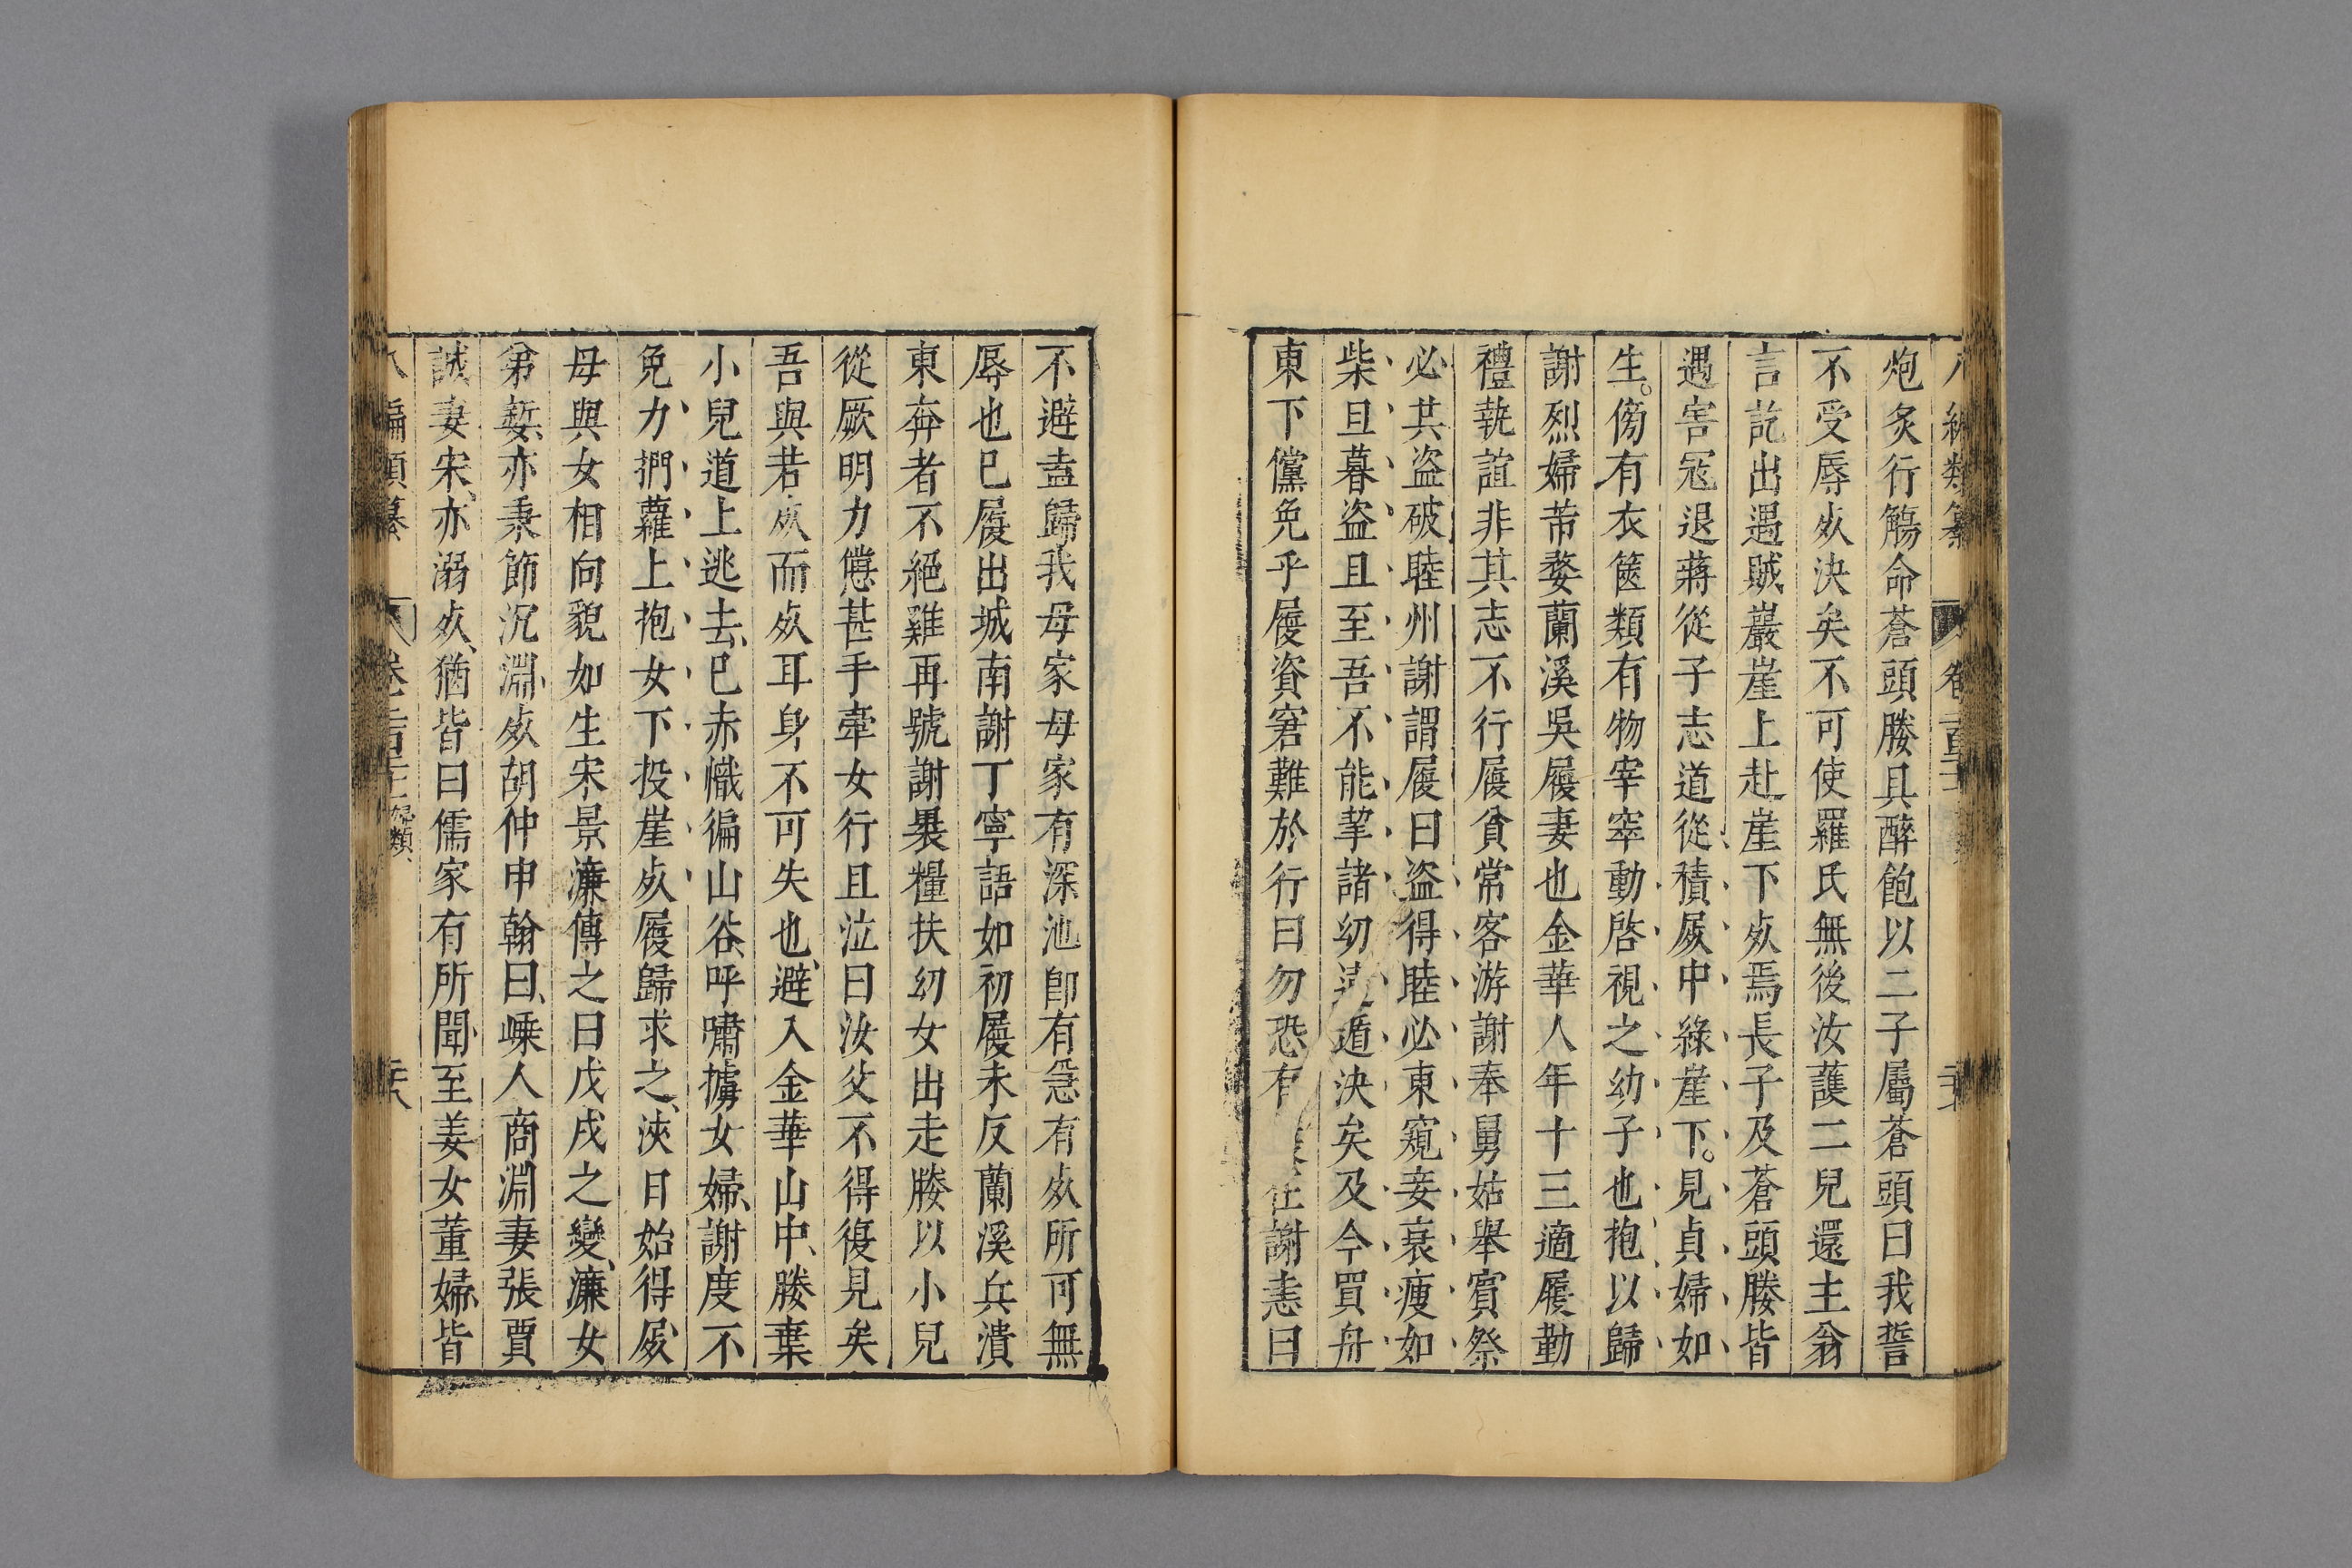 炮炙行觴命蒼頭媵具醉飽以二子屬蒼頭曰我誓
不受辱㱙決矣不可使羅氏無後汝護二兒還主翁
言訖出遇賊巖崖上赴崖下㱙焉長子及蒼頭媵皆
遇害寇退蔣從子志道從積屍中綠崖下。見貞婦如
生。傍有衣篋類有物宰窣動啓視之幼子也抱以歸
謝烈婦芾婺蘭溪吳履妻也金華人年十三適履勤
禮執誼非其志不行履貧常客游謝奉舅姑舉賓祭
必共盜破睦州謝謂履曰盜得睦必東窺妾衰瘦如
柴旦暮盜且至吾不能挈諸幼遠遁決矣及今買舟
東下儻免乎履資窘難於行曰勿恐有在謝恚曰
不避盍歸我母家母家有深池卽有急有㱙所可無
辱也巳履出城南謝丁寧語如初履未反蘭溪兵潰
東奔者不絕雞再號謝裹糧扶幼女出走媵以小兒
從厥明力憊甚手牽女行且泣曰汝父不得復見矣
吾與若㱙而㱙耳身不可失也避入金華山中媵棄
小兒道上逃去巳赤幟徧山谷呼嘯擄女婦謝度不
免力捫蘿上抱女下投崖㱙履歸求之浹日始得屍
母與女相向貌如生宋景濂傳之曰戊戌之變濂女
弟嫛亦秉節沉淵㱙胡仲申翰曰嵊人商淵妻張賈
誠妻宋亦溺㱙猶皆曰儒家有所聞至姜女董婦皆